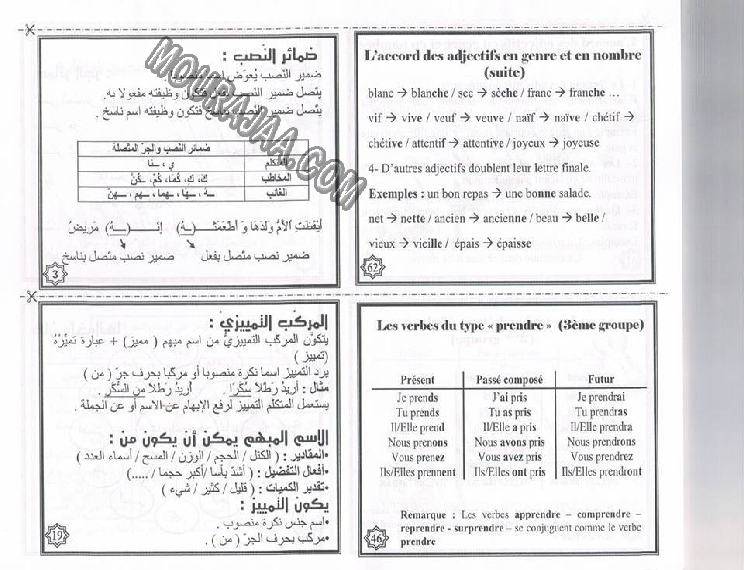 ضمائر النّصب :
ضمير النّصب يُعوّض
يتّصل ضمير النصب بفعل فتكون وظيفته مفعولا به.
يتّصل ضمير النّصب بناسخ فتكون وظيفته اسم ناسخ .
ضمائر النّصب والجرّ المتّصلة
المتكلم ي ، ـنا
المخاطب كَ، كِ، كُمَا، كُمْ، ـكُنَّ
الغائب ـه ، ـها ، ـهما ، ـهم ، ـهنّ
أيقظت الأمُّ ولدَها وَ أطْعَمَتْــ(ـهُ) إنــ(ـهُ) مَريضٌ
ضمير نصب متّصل بفعل ضمير نصب متّصل بناسخ
3
L'accord des adjectifs en genre et en nombre
(suite)
blanc → blanche / sec → sèche / franc → franche ...
vif → vive / veuf → veuve / naïf → naïve / chétif →
chétive / attentif → attentive / joyeux → joyeuse
4- D'autres adjectifs doublent leur lettre finale.
Exemples : un bon repas → une bonne salade.
net → nette / ancien → ancienne / beau → belle /
vieux → vieille / épais → épaisse
62
المركّب التّمييزيّ :
يتكوّن المركّب التمييزيّ من اسم مبهم ( مميز) + عبارة تميّزهُ
(تمييز )
يرد التمييز اسما نكرة منصوبا أو مركّبا بحرف جرّ ( من )
مثال : أريدُ رَطْلاً سُكَّرًا . أريدُ رَطْلاً مِن السُّكَّرِ .
يستعمل المتكلم التمييز لرفع الإبهام عن الاسم أو عن الجملة .
الاسم المبهم يمكن أن يكون من :
•المقادير : ( الكيل / الحجم / الوزن / المسح / أسماء العدد )
•أفعال التفضيل : ( أشدّ بأسا /أكبر حجما / .....)
•تقدير الكميات : ( قليل / كثير / شيء )
يكون التمييز :
•اسم جنس نكرة منصوب .
•مركّب بحرف الجرّ ( من ) .
19
Les verbes du type « prendre » (3ème groupe)
Présent Passé composé Futur
Je prends J'ai pris Je prendrai
Tu prends Tu as pris Tu prendras
Il/Elle prend Il/Elle a pris Il/Elle prendra
Nous prenons Nous avons pris Nous prendrons
Vous prenez Vous avez pris Vous prendrez
Ils/Elles prennent Ils/Elles ont pris Ils/Elles prendront
Remarque : Les verbes apprendre – comprendre –
reprendre - surprendre – se conjuguent comme le verbe
prendre
46
MOURAJAA.COM